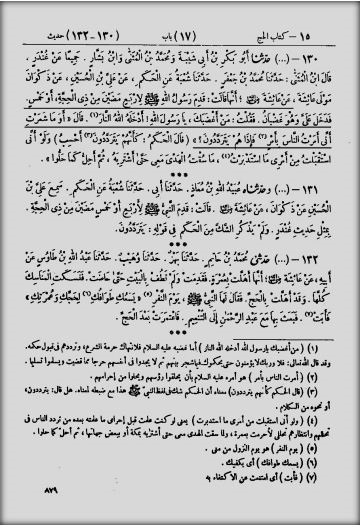 ١٥ – كتاب الحج (١٧) باب (١٣٠ – ١٣٢) حديث
١٣٠ – (...) حدثنا أَبُو بَكْرِ بْنُ أَبِي شَيْبَةَ وَمُحَمَّدُ بْنُ الْمُثَنَّى وَابْنُ بَشَّارٍ. جَمِيعًا عَنْ غُنْدَرٍ.
قَالَ ابْنُ الْمُثَنَّى: حَدَّثَنَا مُحَمَّدُ بْنُ جَعْفَرٍ. حَدَّثَنَا شُعْبَةُ عَنِ الْحَكَمِ، عَنْ عَلِيِّ بْنِ الْحُسَيْنِ، عَنْ ذَكْوَانَ
مَوْلَى عَائِشَةَ، عَنْ عَائِشَةَ ؛ أَنَّهَا قَالَتْ: قَدِمَ رَسُولُ اللهِ ﷺ لِأَرْبَعٍ مَضَيْنَ مِنْ ذِي الْحِجَّةِ، أَوْ خَمْسٍ.
فَدَخَلَ عَلَيَّ وَهُوَ غَضْبَانُ. فَقُلْتُ: مَنْ أَغْضَبَكَ، يَا رَسُولَ اللهِ! أَدْخَلَهُ اللهُ النَّارَ(١). قَالَ « أَوَ مَا شَعَرْتِ
أَنِّي أَمَرْتُ النَّاسَ بِأَمْرٍ(٢) فَإِذَا هُمْ يَتَرَدَّدُونَ؟ » ( قَالَ الْحَكَمُ: كَأَنَّهُمْ يَتَرَدَّدُونَ(٣) أَحْسِبُ) « وَلَوْ أَنِّي
اسْتَقْبَلْتُ مِنْ أَمْرِي مَا اسْتَدْبَرْتُ(٤)، مَا سُقْتُ الْهَدْيَ مَعِي حَتَّى أَشْتَرِيَهُ، ثُمَّ أَحِلُّ كَمَا حَلُّوا ».
***
١٣١ – (...) وحدثناه عُبَيْدُ اللهِ بْنُ مُعَاذٍ. حَدَّثَنَا أَبِي. حَدَّثَنَا شُعْبَةُ عَنِ الْحَكَمِ. سَمِعَ عَلِيَّ بْنَ
الْحُسَيْنِ عَنْ ذَكْوَانَ، عَنْ عَائِشَةَ. قَالَتْ: قَدِمَ النَّبِيُّ ﷺ لِأَرْبَعٍ أَوْ خَمْسٍ مَضَيْنَ مِنْ ذِي الْحِجَّةِ.
بِمِثْلِ حَدِيثِ غُنْدَرٍ. وَلَمْ يَذْكُرِ الشَّكَّ مِنَ الْحَكَمِ فِي قَوْلِهِ: يَتَرَدَّدُونَ.
***
١٣٢ – (...) حدثني مُحَمَّدُ بْنُ حَاتِمٍ. حَدَّثَنَا بَهْزٌ. حَدَّثَنَا وُهَيْبٌ. حَدَّثَنَا عَبْدُ اللهِ بْنُ طَاوُسٍ عَنْ
أَبِيهِ، عَنْ عَائِشَةَ؛ أَنَّهَا أَهَلَّتْ بِعُمْرَةٍ. فَقَدِمَتْ وَلَمْ تَطُفْ بِالْبَيْتِ حَتَّى حَاضَتْ. فَنَسَكَتِ الْمَنَاسِكَ
كُلَّهَا. وَقَدْ أَهَلَّتْ بِالْحَجِّ. فَقَالَ لَهَا النَّبِيُّ ﷺ، يَوْمَ النَّفْرِ(٥) « يَسَعُكِ طَوَافُكِ(٦) لِحَجِّكِ وَعُمْرَتِكِ »
فَأَبَتْ(٧). فَبَعَثَ بِهَا مَعَ عَبْدِ الرَّحْمٰنِ إِلَى التَّنْعِيمِ. فَاعْتَمَرَتْ بَعْدَ الْحَجِّ.
***
(١) ( من أغضبك يا رسول الله أدخله الله النار ) أما غضبه عليه السلام فلانتهاك حرمة الشرع، وترددهم في قبول حكمه.
وقد قال الله تعالى: فلا وربك لا يؤمنون حتى يحكموك فيما شجر بينهم ثم لا يجدوا في أنفسهم حرجا مما قضيت ويسلموا تسليما.
(٢) ( أمرت الناس بأمر ) هو أمره عليه السلام بأن يحلقوا رؤسهم ويحلوا من إحرامهم.
(٣) ( قال الحكم كأنهم يترددون ) معناه أن الحكم شك في لفظ النبي ﷺ هذا، مع ضبطه لمعناه. هل قال: يترددون،
أو نحوه من الكلام.
(٤) ( ولو أني استقبلت من أمري ما استدبرت ) يعني لو كنت علمت قبل إحرامي ما علمته بعده من تردد الناس في
تحللهم وانتظارهم تحللي لأحرمت بعمرة، وما سقت الهدي معي حتى أشتريه بمكة أو بعض جهاتها، ثم أحل كما حلوا.
(٥) ( يوم النفر ) هو يوم النزول من منى.
(٦) ( يسعك طوافك ) أي يكفيك.
(٧) ( فأبت ) أي امتنعت عن الاكتفاء به
٨٧٩